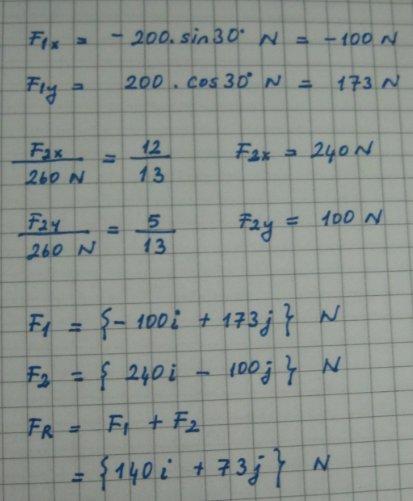 F1x = - 200. sin30° N = -100 N
F1y = 200 . cos30° N = 173 N
F2x / 260 N = 12 / 13 F2x = 240 N
F2y / 260 N = 5 / 13 F2y = 100 N
F1 = {- 100i + 173j} N
F2 = { 240i - 100j } N
FR = F1 + F2
= {140i + 73j} N